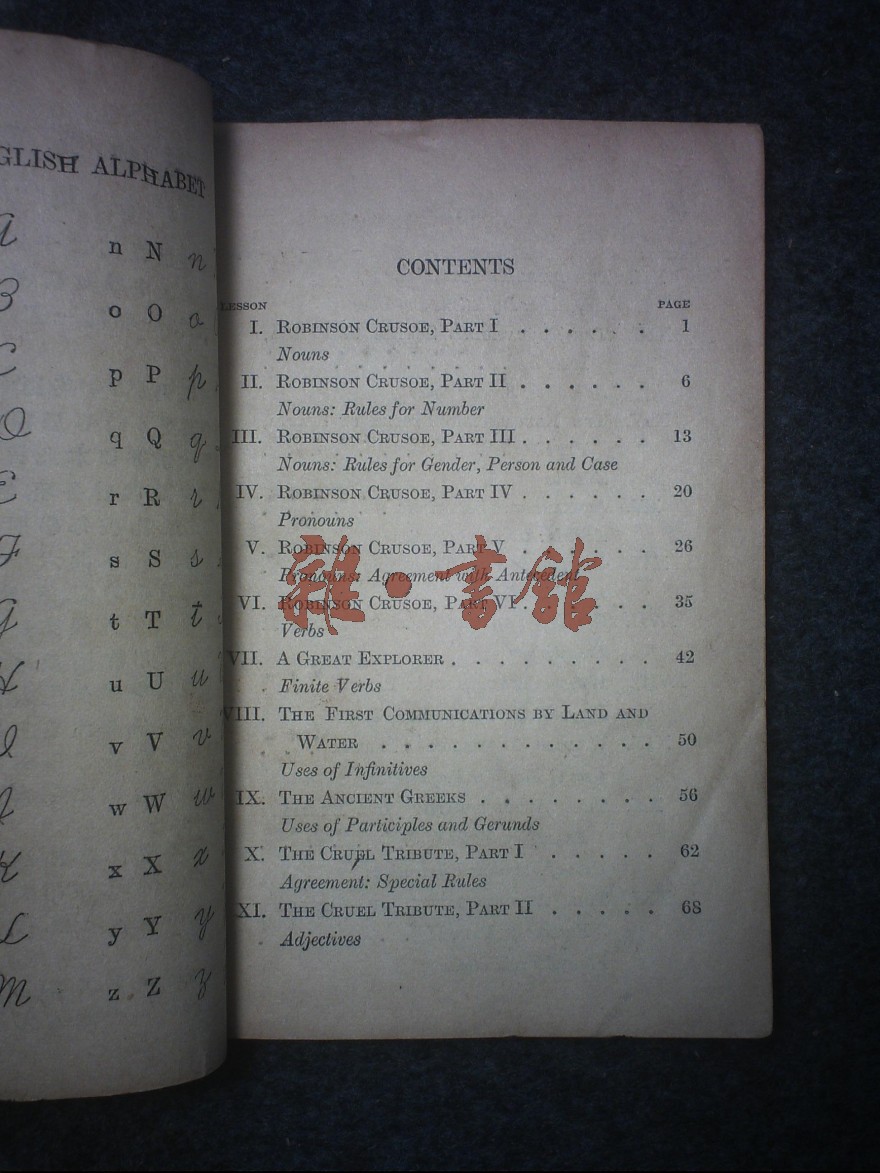 GLISH ALPHABET
n N n
o O o
p P p
q Q q
r R r
s S s
t T t
u U u
v V v
w W w
x X x
y Y y
z Z z
CONTENTS
LESSON PAGE
I. ROBINSON CRUSOE, PART I . . . . . . 1
Nouns
II. ROBINSON CRUSOE, PART II . . . . . . 6
Nouns: Rules for Number
III. ROBINSON CRUSOE, PART III . . . . . . 13
Nouns: Rules for Gender, Person and Case
IV. ROBINSON CRUSOE, PART IV . . . . . . 20
Pronouns
V. ROBINSON CRUSOE, PART V . . . . . . 26
Pronouns: Agreement with Antecedent
VI. ROBINSON CRUSOE, PART VI . . . . . . 35
Verbs
VII. A GREAT EXPLORER . . . . . . . . 42
Finite Verbs
VIII. THE FIRST COMMUNICATIONS BY LAND AND
WATER . . . . . . . . . . . . 50
Uses of Infinitives
IX. THE ANCIENT GREEKS . . . . . . . . 56
Uses of Participles and Gerunds
X. THE CRUEL TRIBUTE, PART I . . . . . 62
Agreement: Special Rules
XI. THE CRUEL TRIBUTE, PART II . . . . . 68
Adjectives
雜·書館